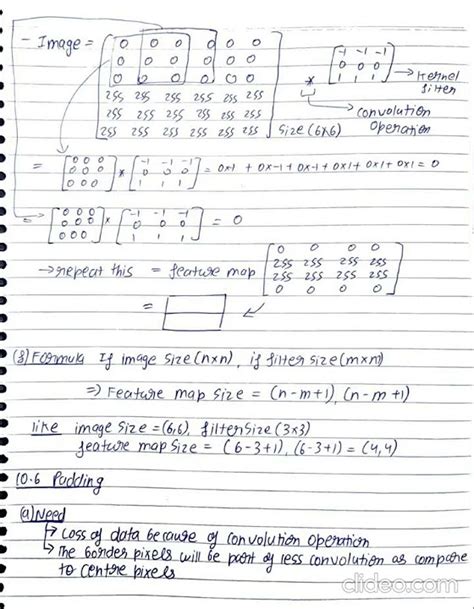 - Image = [0 0 0 0 0 0
0 0 0 0 0 0
0 0 0 0 0 0
255 255 255 255 255 255
255 255 255 255 255 255
255 255 255 255 255 255] Size (6x6)
* [-1 -1 -1
0 0 0
1 1 1] → Kernel
filter
→ convolution
operation
= [0 0 0
0 0 0
0 0 0] * [-1 -1 -1
0 0 0
1 1 1] = 0x1 + 0x-1 + 0x-1 + 0x1 + 0x1 + 0x1 = 0
= [0 0 0
0 0 0
0 0 0] * [-1 -1 -1
0 0 0
1 1 1] = 0
→ repeat this = feature map [0 0 0 0
255 255 255 255
255 255 255 255
0 0 0 0]
=
Formula If image size (nxn), if filter size (mxn)
⇒ Feature map size = (n-m+1), (n-m+1)
like image size = (6,6), filter size (3x3)
feature map size = (6-3+1), (6-3+1) = (4,4)
10.6 Padding
(a) Need
→ Loss of data because of convolution operation
→ The border pixels will be part of less convolution as compare
to centre pixels
clideo.com